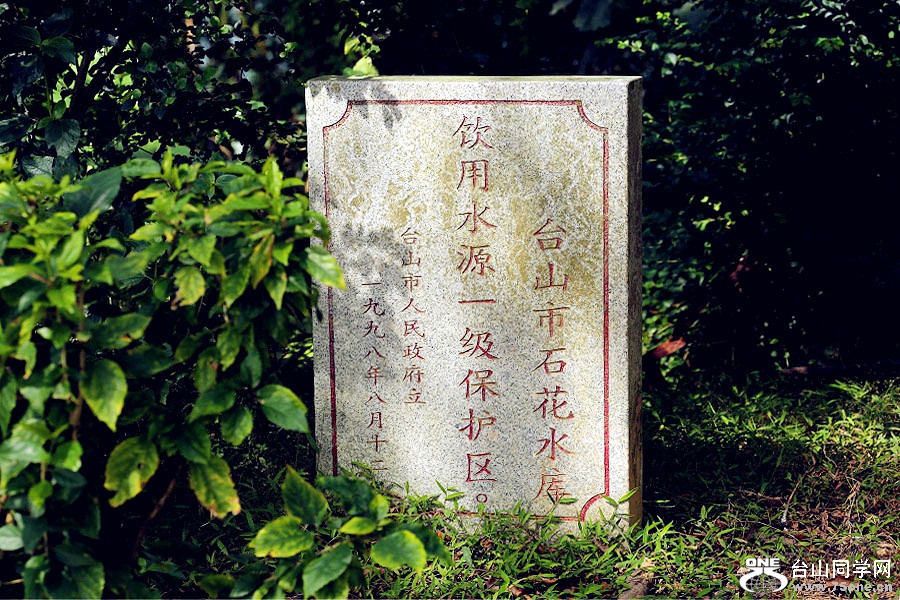 台山市石花水库
饮用水源一级保护区。
台山市人民政府立
一九九八年八月十二
ONE 台山同学网
www.7sone.cn